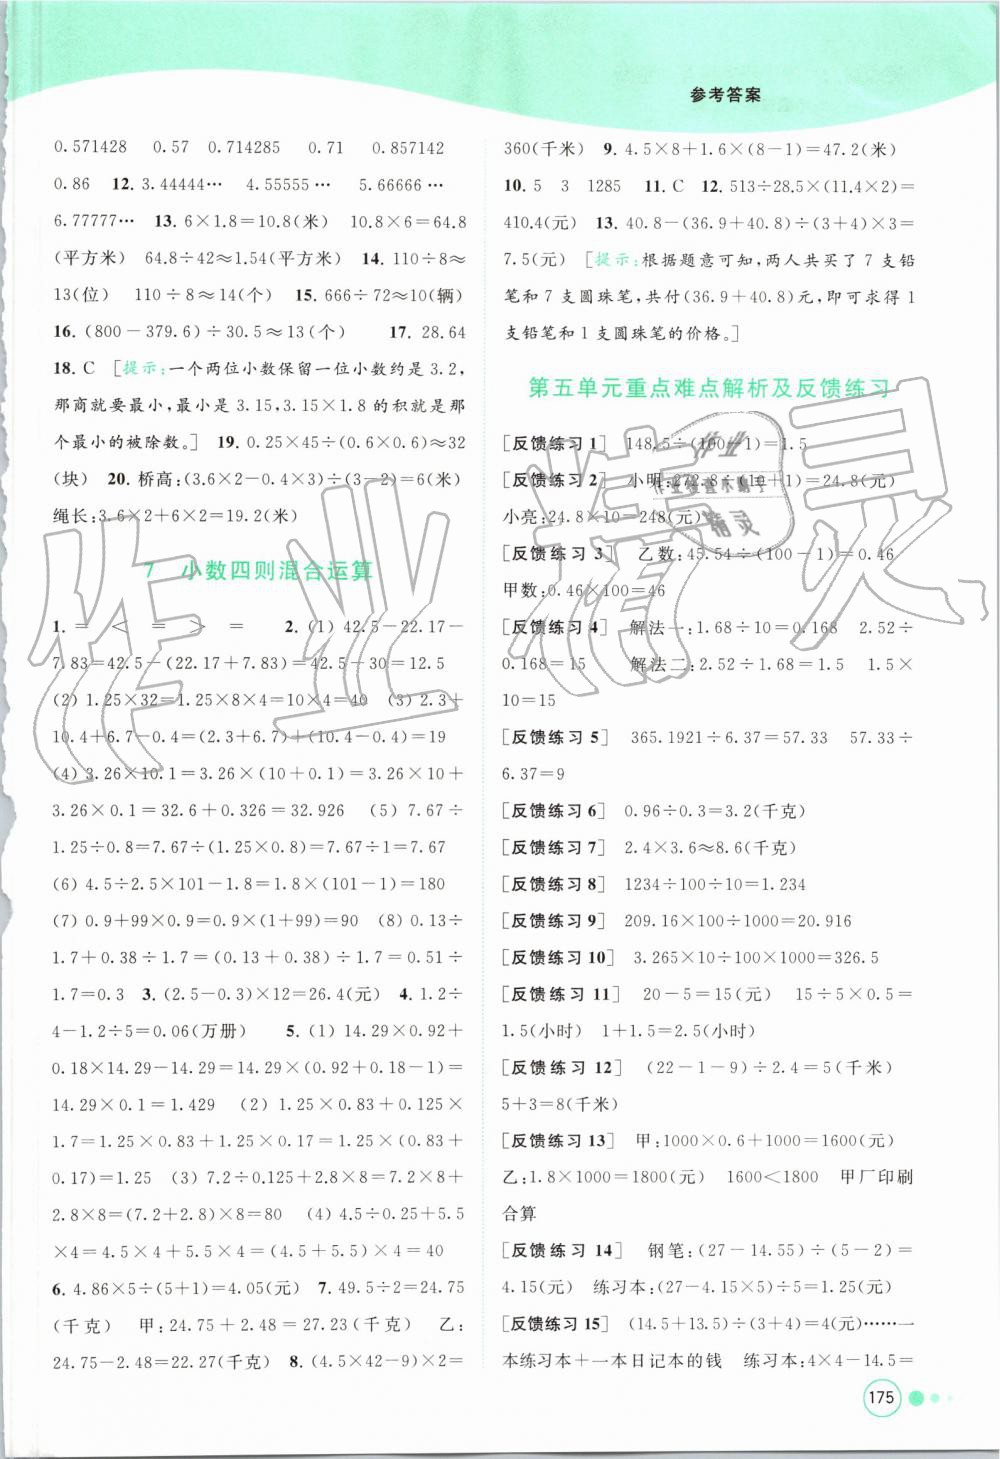 参考答案
0.571428　0.57　0.714285　0.71　0.857142
0.86　12. 3.44444…　4.55555…　5.66666…
6.77777…　13. 6×1.8=10.8(米)　10.8×6=64.8
(平方米)　64.8÷42≈1.54(平方米)　14. 110÷8≈
13(位)　110÷8≈14(个)　15. 666÷72≈10(辆)
16. (800-379.6)÷30.5≈13(个)　17. 28.64
18. C　[提示:一个两位小数保留一位小数约是3.2,
那商就要最小,是3.15,3.15×1.8的积就是那
个最小的被除数。]　19. 0.25×45÷(0.6×0.6)≈32
(块)　20. 桥高:(3.6×2-0×4)÷(3-2)=6(米)
绳长:3.6×2+6×2=19.2(米)
7　小数四则混合运算
1. =　<　=　>　=　2. (1) 42.5-22.17-
7.83=42.5-(22.17+7.83)=42.5-30=12.5
(2) 1.25×32=1.25×8×4=10×4=40　(3) 2.3+
10.4+6.7-0.4=(2.3+6.7)+(10.4-0.4)=19
(4) 3.26×10.1=3.26×(10+0.1)=3.26×10+
3.26×0.1=32.6+0.326=32.926　(5) 7.67÷
1.25÷0.8=7.67÷(1.25×0.8)=7.67÷1=7.67
(6) 4.5÷2.5×101-1.8=1.8×(101-1)=180
(7) 0.9+99×0.9=0.9×(1+99)=90　(8) 0.13÷
1.7+0.38÷1.7=(0.13+0.38)÷1.7=0.51÷
1.7=0.3　3. (2.5-0.3)×12=26.4(元)　4. 1.2÷
4-1.2÷5=0.06(万册)　5. (1) 14.29×0.92+
0.18×14.29-14.29=14.29×(0.92+0.18-1)=
14.29×0.1=1.429　(2) 1.25×0.83+0.125×
1.7=1.25×0.83+1.25×0.17=1.25×(0.83+
0.17)=1.25　(3) 7.2÷0.125+2.8×8=7.2×8+
2.8×8=(7.2+2.8)×8=80　(4) 4.5÷0.25+5.5
×4=4.5×4+5.5×4=(4.5+5.5)×4=40
6. 4.86×5÷(5+1)=4.05(元)　7. 49.5÷2=24.75
(千克)　甲:24.75+2.48=27.23(千克)　乙:
24.75-2.48=22.27(千克)　8. (4.5×42-9)×2=
360(千米)　9. 4.5×8+1.6×(8-1)=47.2(米)
10. 5　3　1285　11. C　12. 513÷28.5×(11.4×2)=
410.4(元)　13. 40.8-(36.9+40.8)÷(3+4)×3=
7.5(元)　[提示:根据题意可知,两人共买了7支铅
笔和7支圆珠笔,共付(36.9+40.8)元,即可求得1
支铅笔和1支圆珠笔的价格。]
第五单元重点难点解析及反馈练习
[反馈练习1]　148.5÷(100-1)=1.5
[反馈练习2]　小明:272.8÷(10+1)=24.8(元)
小亮:24.8×10=248(元)
[反馈练习3]　乙数:45.54÷(100-1)=0.46
甲数:0.46×100=46
[反馈练习4]　解法一:1.68÷10=0.168　2.52÷
0.168=15　解法二:2.52÷1.68=1.5　1.5×
10=15
[反馈练习5]　365.1921÷6.37=57.33　57.33÷
6.37=9
[反馈练习6]　0.96÷0.3=3.2(千克)
[反馈练习7]　2.4×3.6≈8.6(千克)
[反馈练习8]　1234÷100÷10=1.234
[反馈练习9]　209.16×100÷1000=20.916
[反馈练习10]　3.265×10÷100×1000=326.5
[反馈练习11]　20-5=15(元)　15÷5×0.5=
1.5(小时)　1+1.5=2.5(小时)
[反馈练习12]　(22-1-9)÷2.4=5(千米)
5+3=8(千米)
[反馈练习13]　甲:1000×0.6+1000=1600(元)
乙:1.8×1000=1800(元)　1600<1800　甲厂印刷
合算
[反馈练习14]　钢笔:(27-14.55)÷(5-2)=
4.15(元)　练习本:(27-4.15×5)÷5=1.25(元)
[反馈练习15]　(14.5+13.5)÷(3+4)=4(元)……一
本练习本+一本日记本的钱　练习本:4×4-14.5=
175
作业精灵
精灵